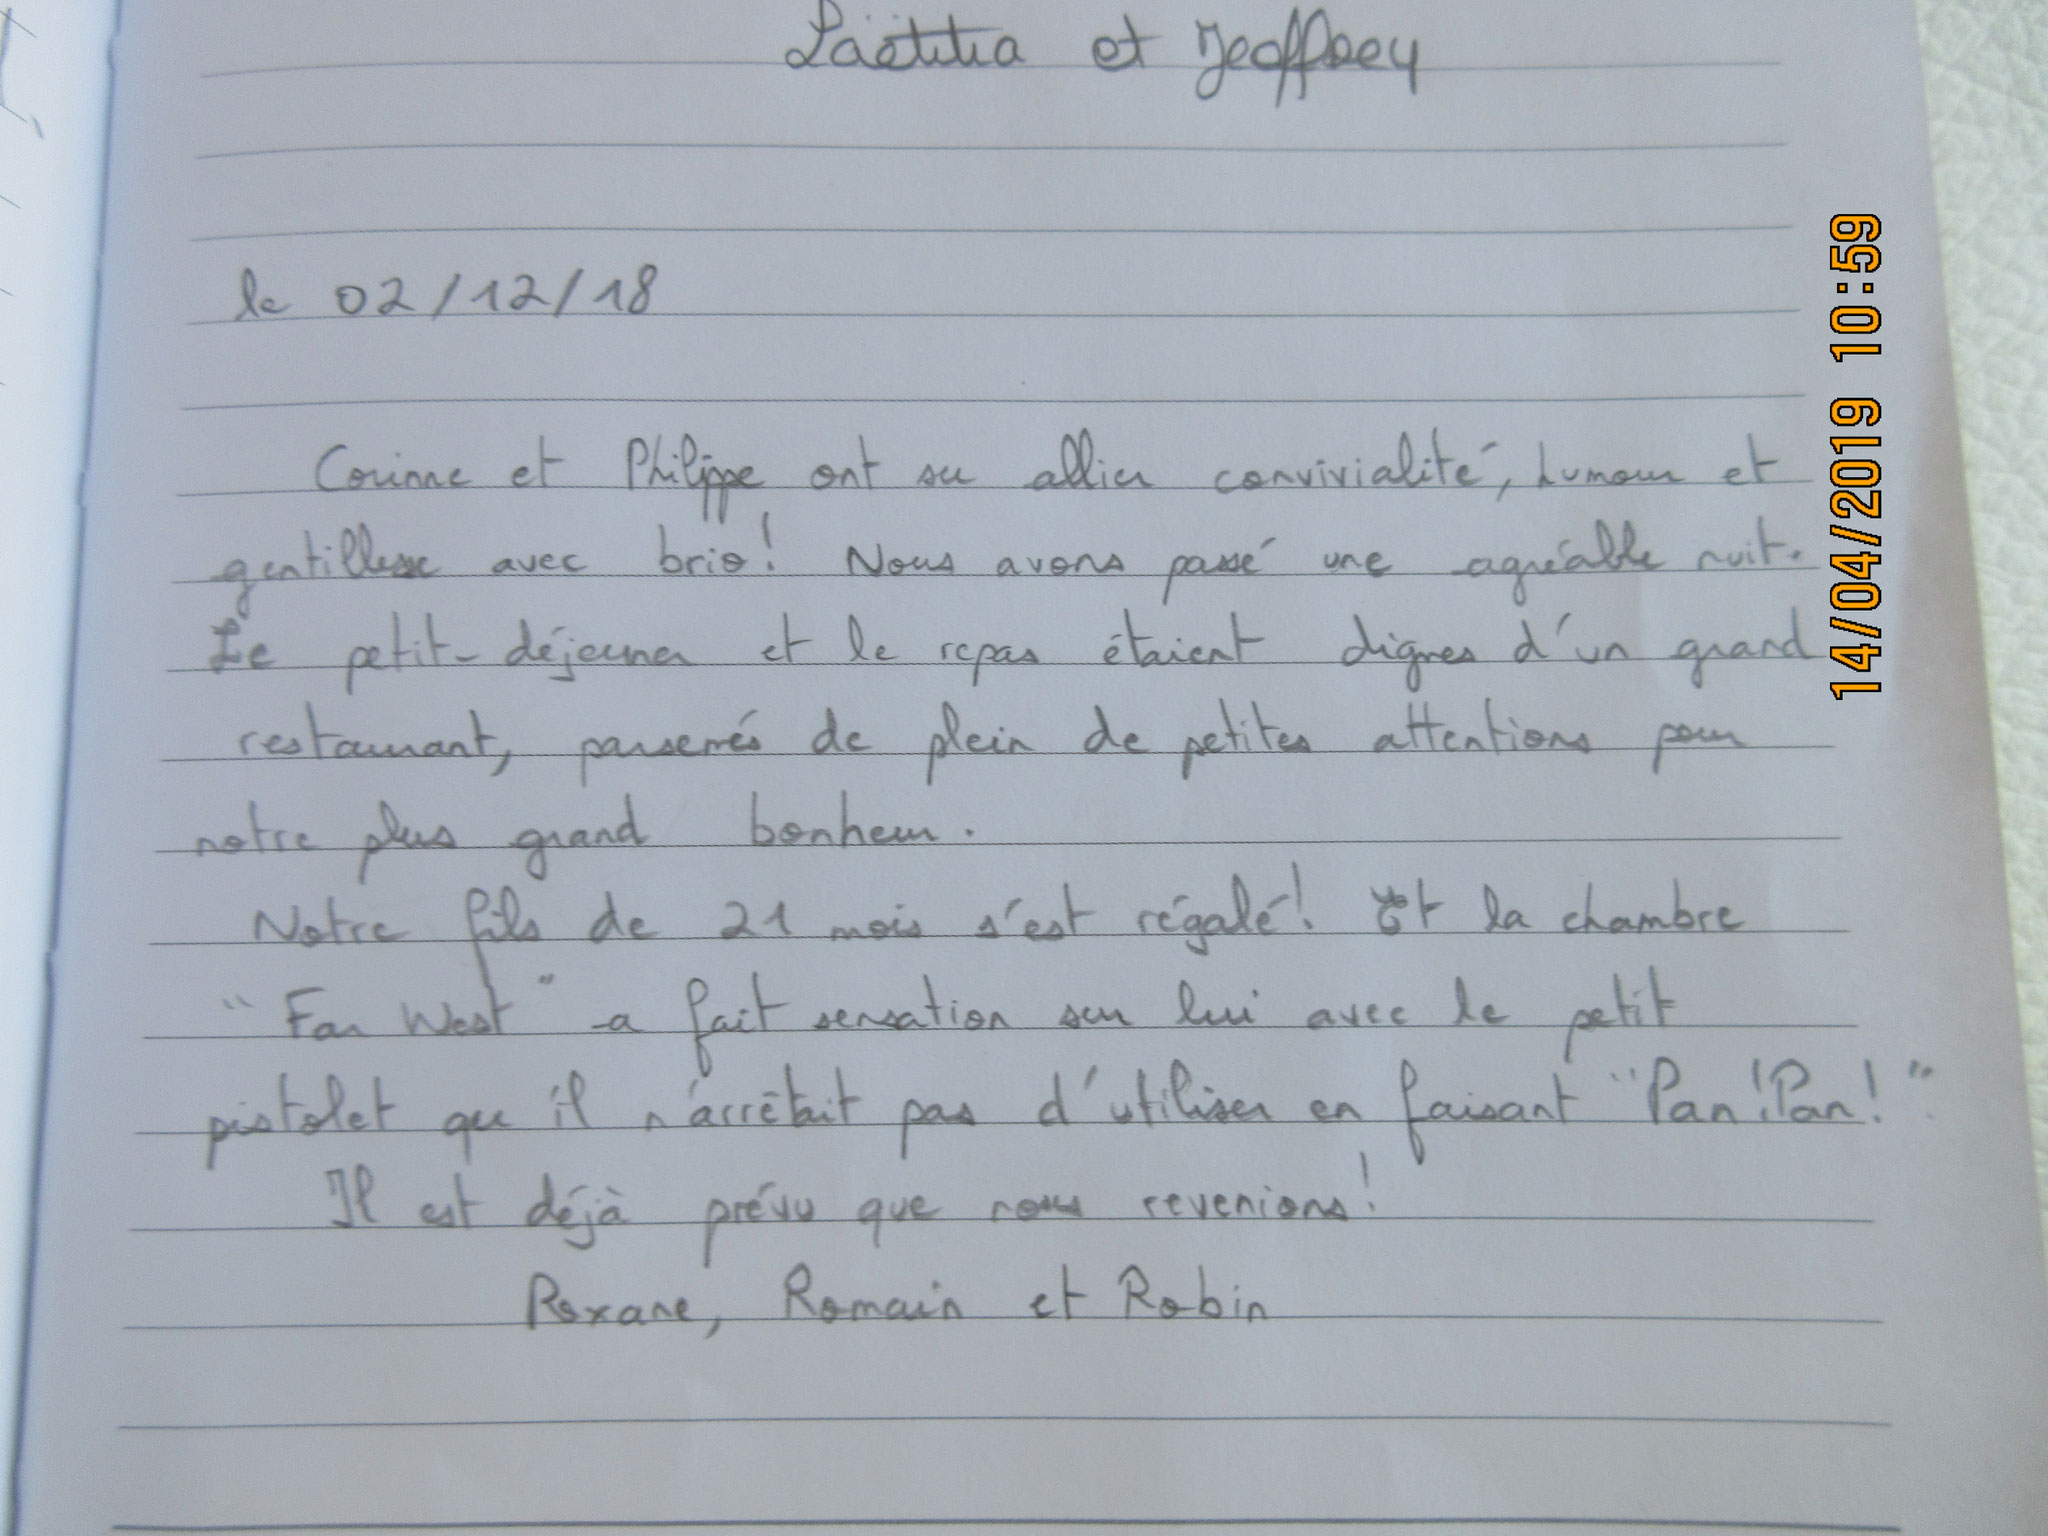 Laëtitia et Jeoffrey
le 02/12/18
Corinne et Philippe ont su allier convivialité, humour et
gentillesse avec brio! Nous avons passé une agréable nuit.
Le petit-déjeuner et le repas étaient dignes d'un grand
restaurant, parsemés de plein de petites attentions pour
notre plus grand bonheur.
Notre fils de 21 mois s'est régalé! Et la chambre
"Far West" a fait sensation sur lui avec le petit
pistolet que il n'arrêtait pas d'utiliser en faisant "Pan! Pan!"
Il est déjà prévu que nous revenions!
Roxane, Romain et Robin
14/04/2019 10:59